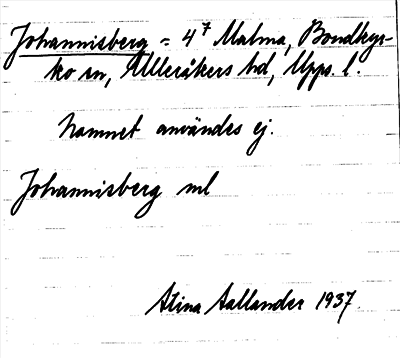 Johannisberg = 4⁷ Malma, Bondkyr-
ko sn, Ulleråkers hd, Upps. l.
Namnet användes ej.
Johannisberg ml
Stina Aallander 1937.